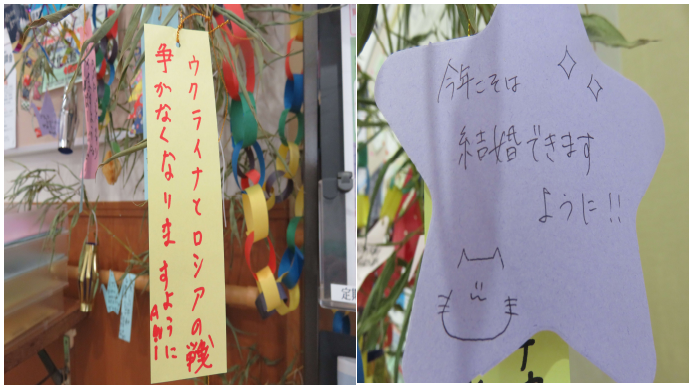 ウクライナとロシアの戦
争がなくなりますように
今年こそは
結婚できます
ように!!
定